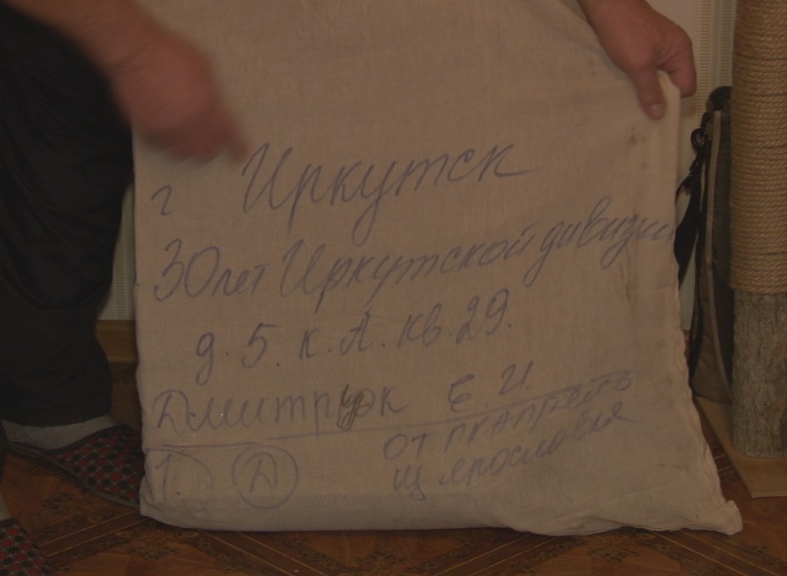 г Иркутск
30 лет Иркутской дивизии
д. 5. к. А. кв. 29.
Дмитрюк Е. И.
1 Д от
Ярославля